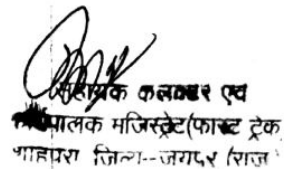 सहायक कलक्टर एवं
कार्यपालक मजिस्ट्रेट(फास्ट ट्रेक
शाहपुरा जिला--जयपुर (राज